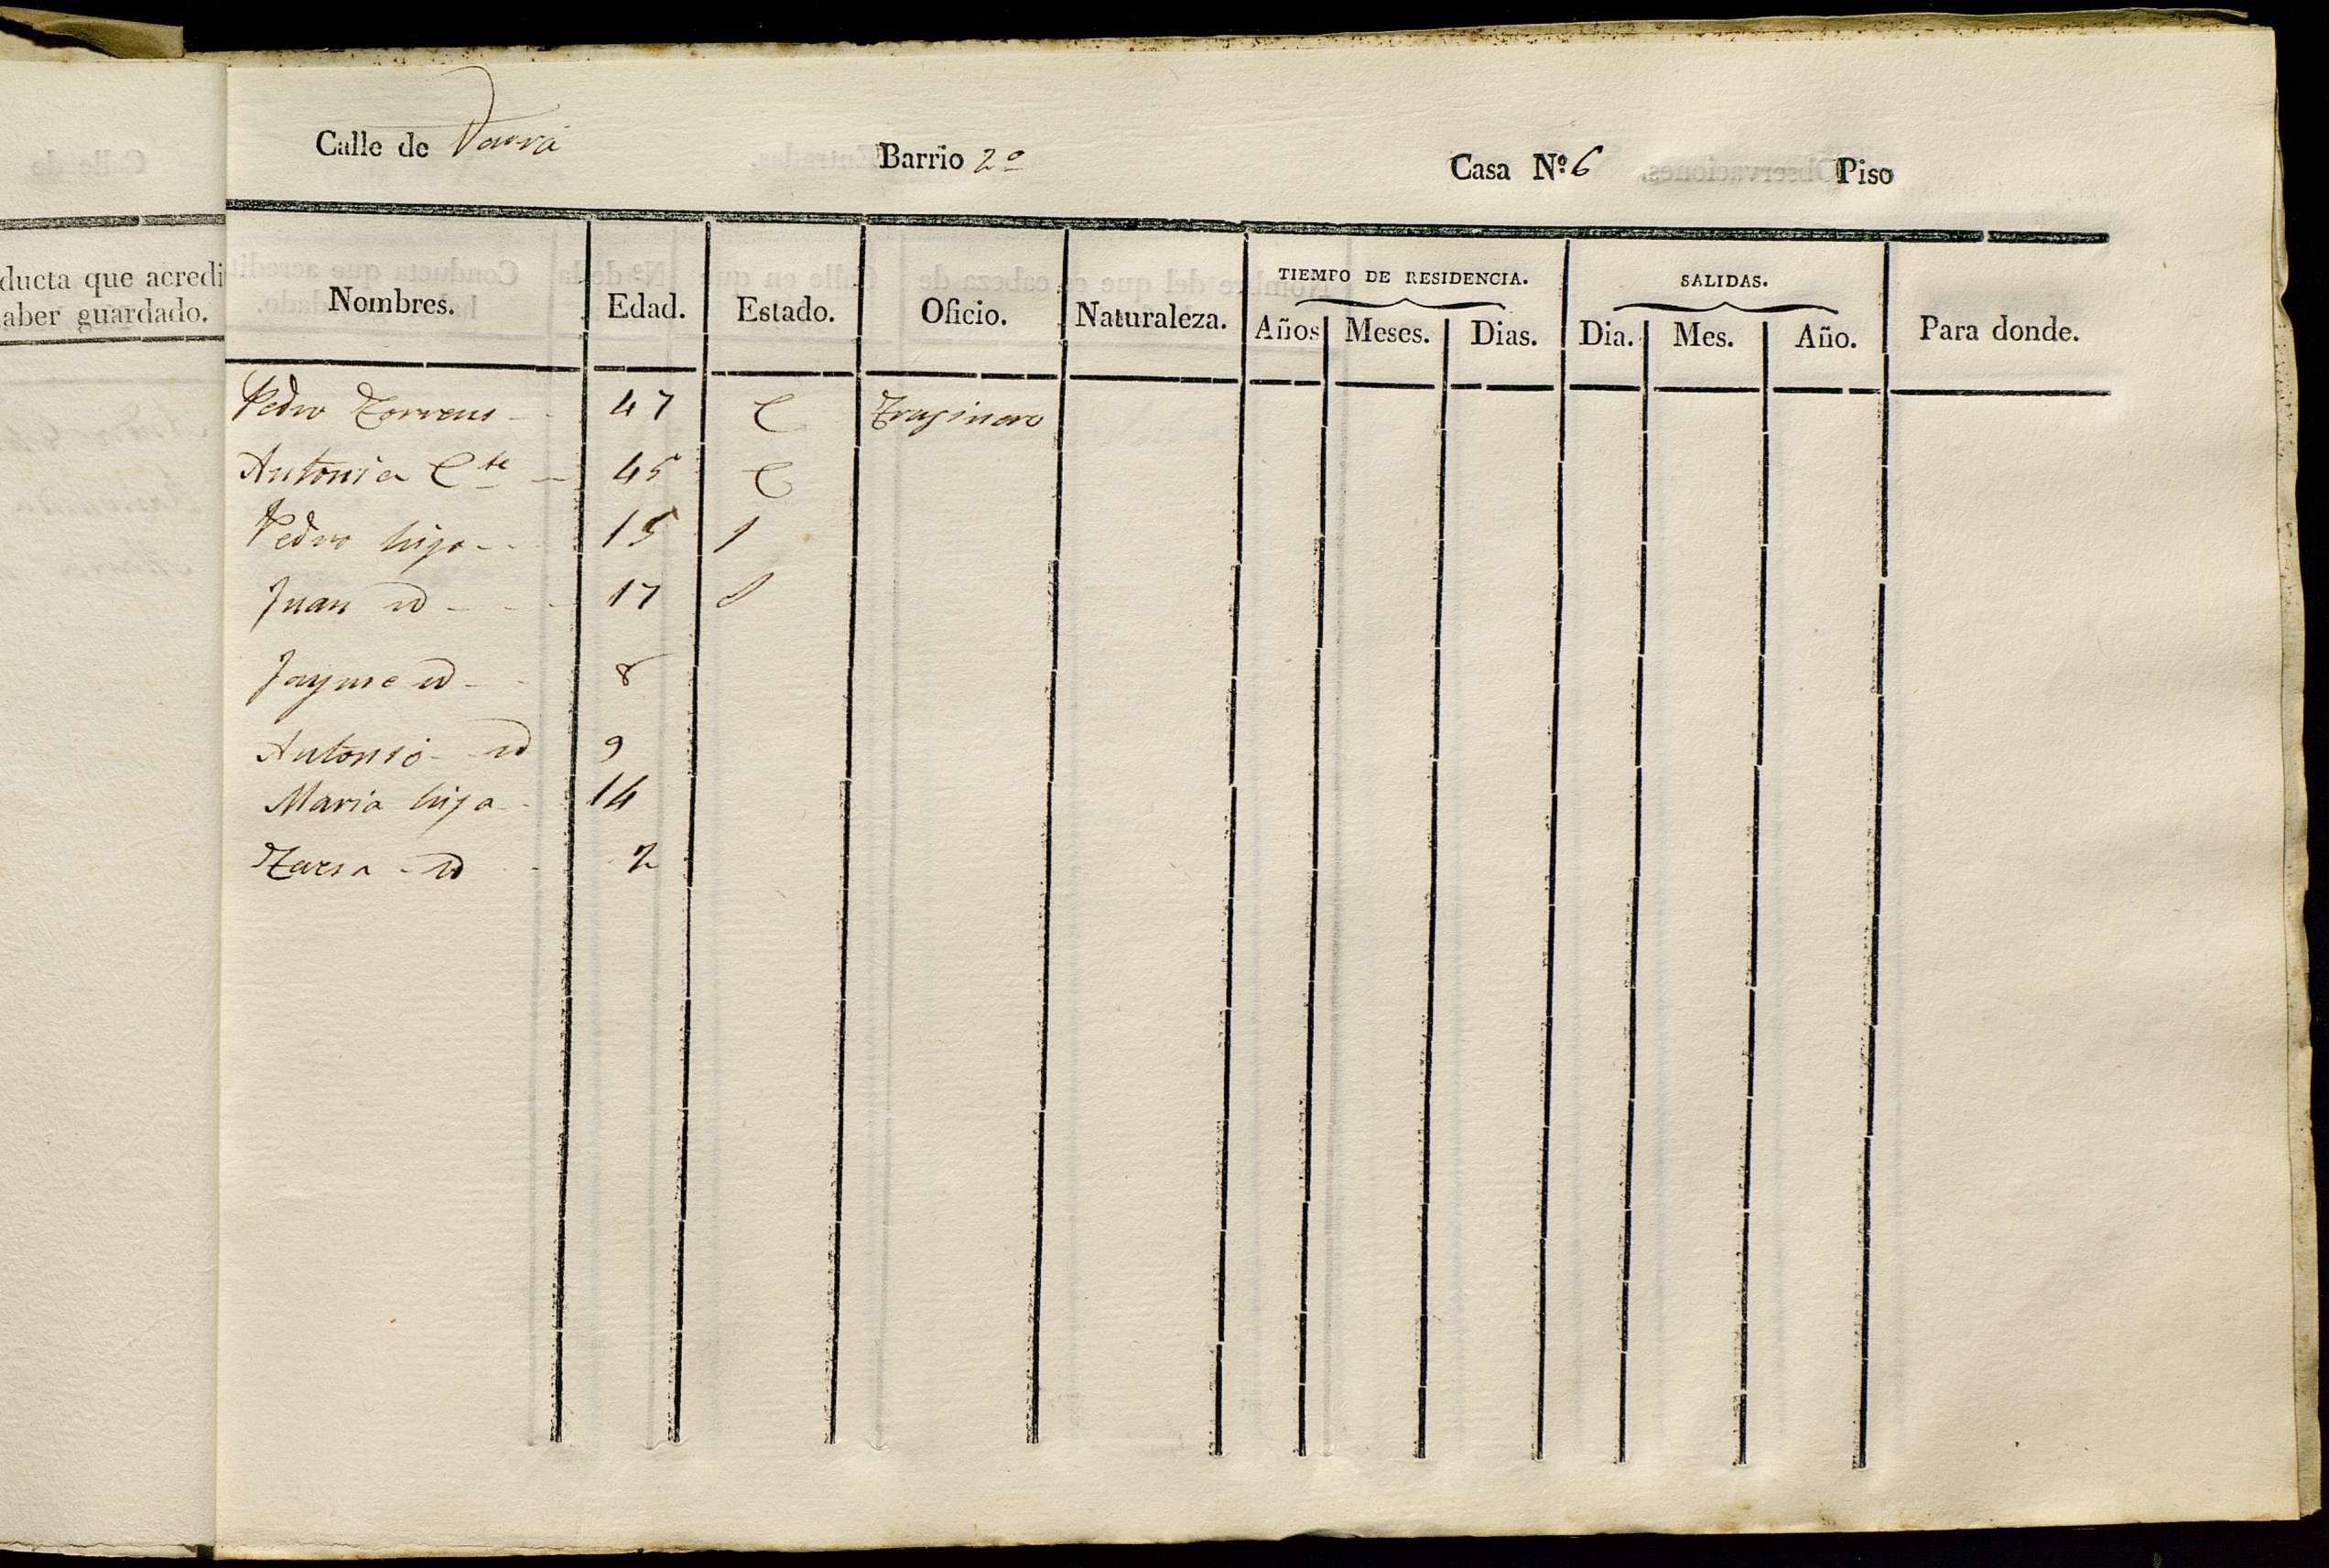 Calle de Barrio 2º Casa Nº 6 Piso
ducta que acredi
aber guardado.
Nombres. Edad. Estado. Oficio. Naturaleza. TIEMPO DE RESIDENCIA. SALIDAS. Para donde.
Años Meses. Dias. Dia. Mes. Año.
Pedro Torrens 47 C Traginero
Antonia C.te 45 C
Pedro hijo 15
Juan id 17
Jayme id 8
Antonio id 9
Maria hija 14
id 2